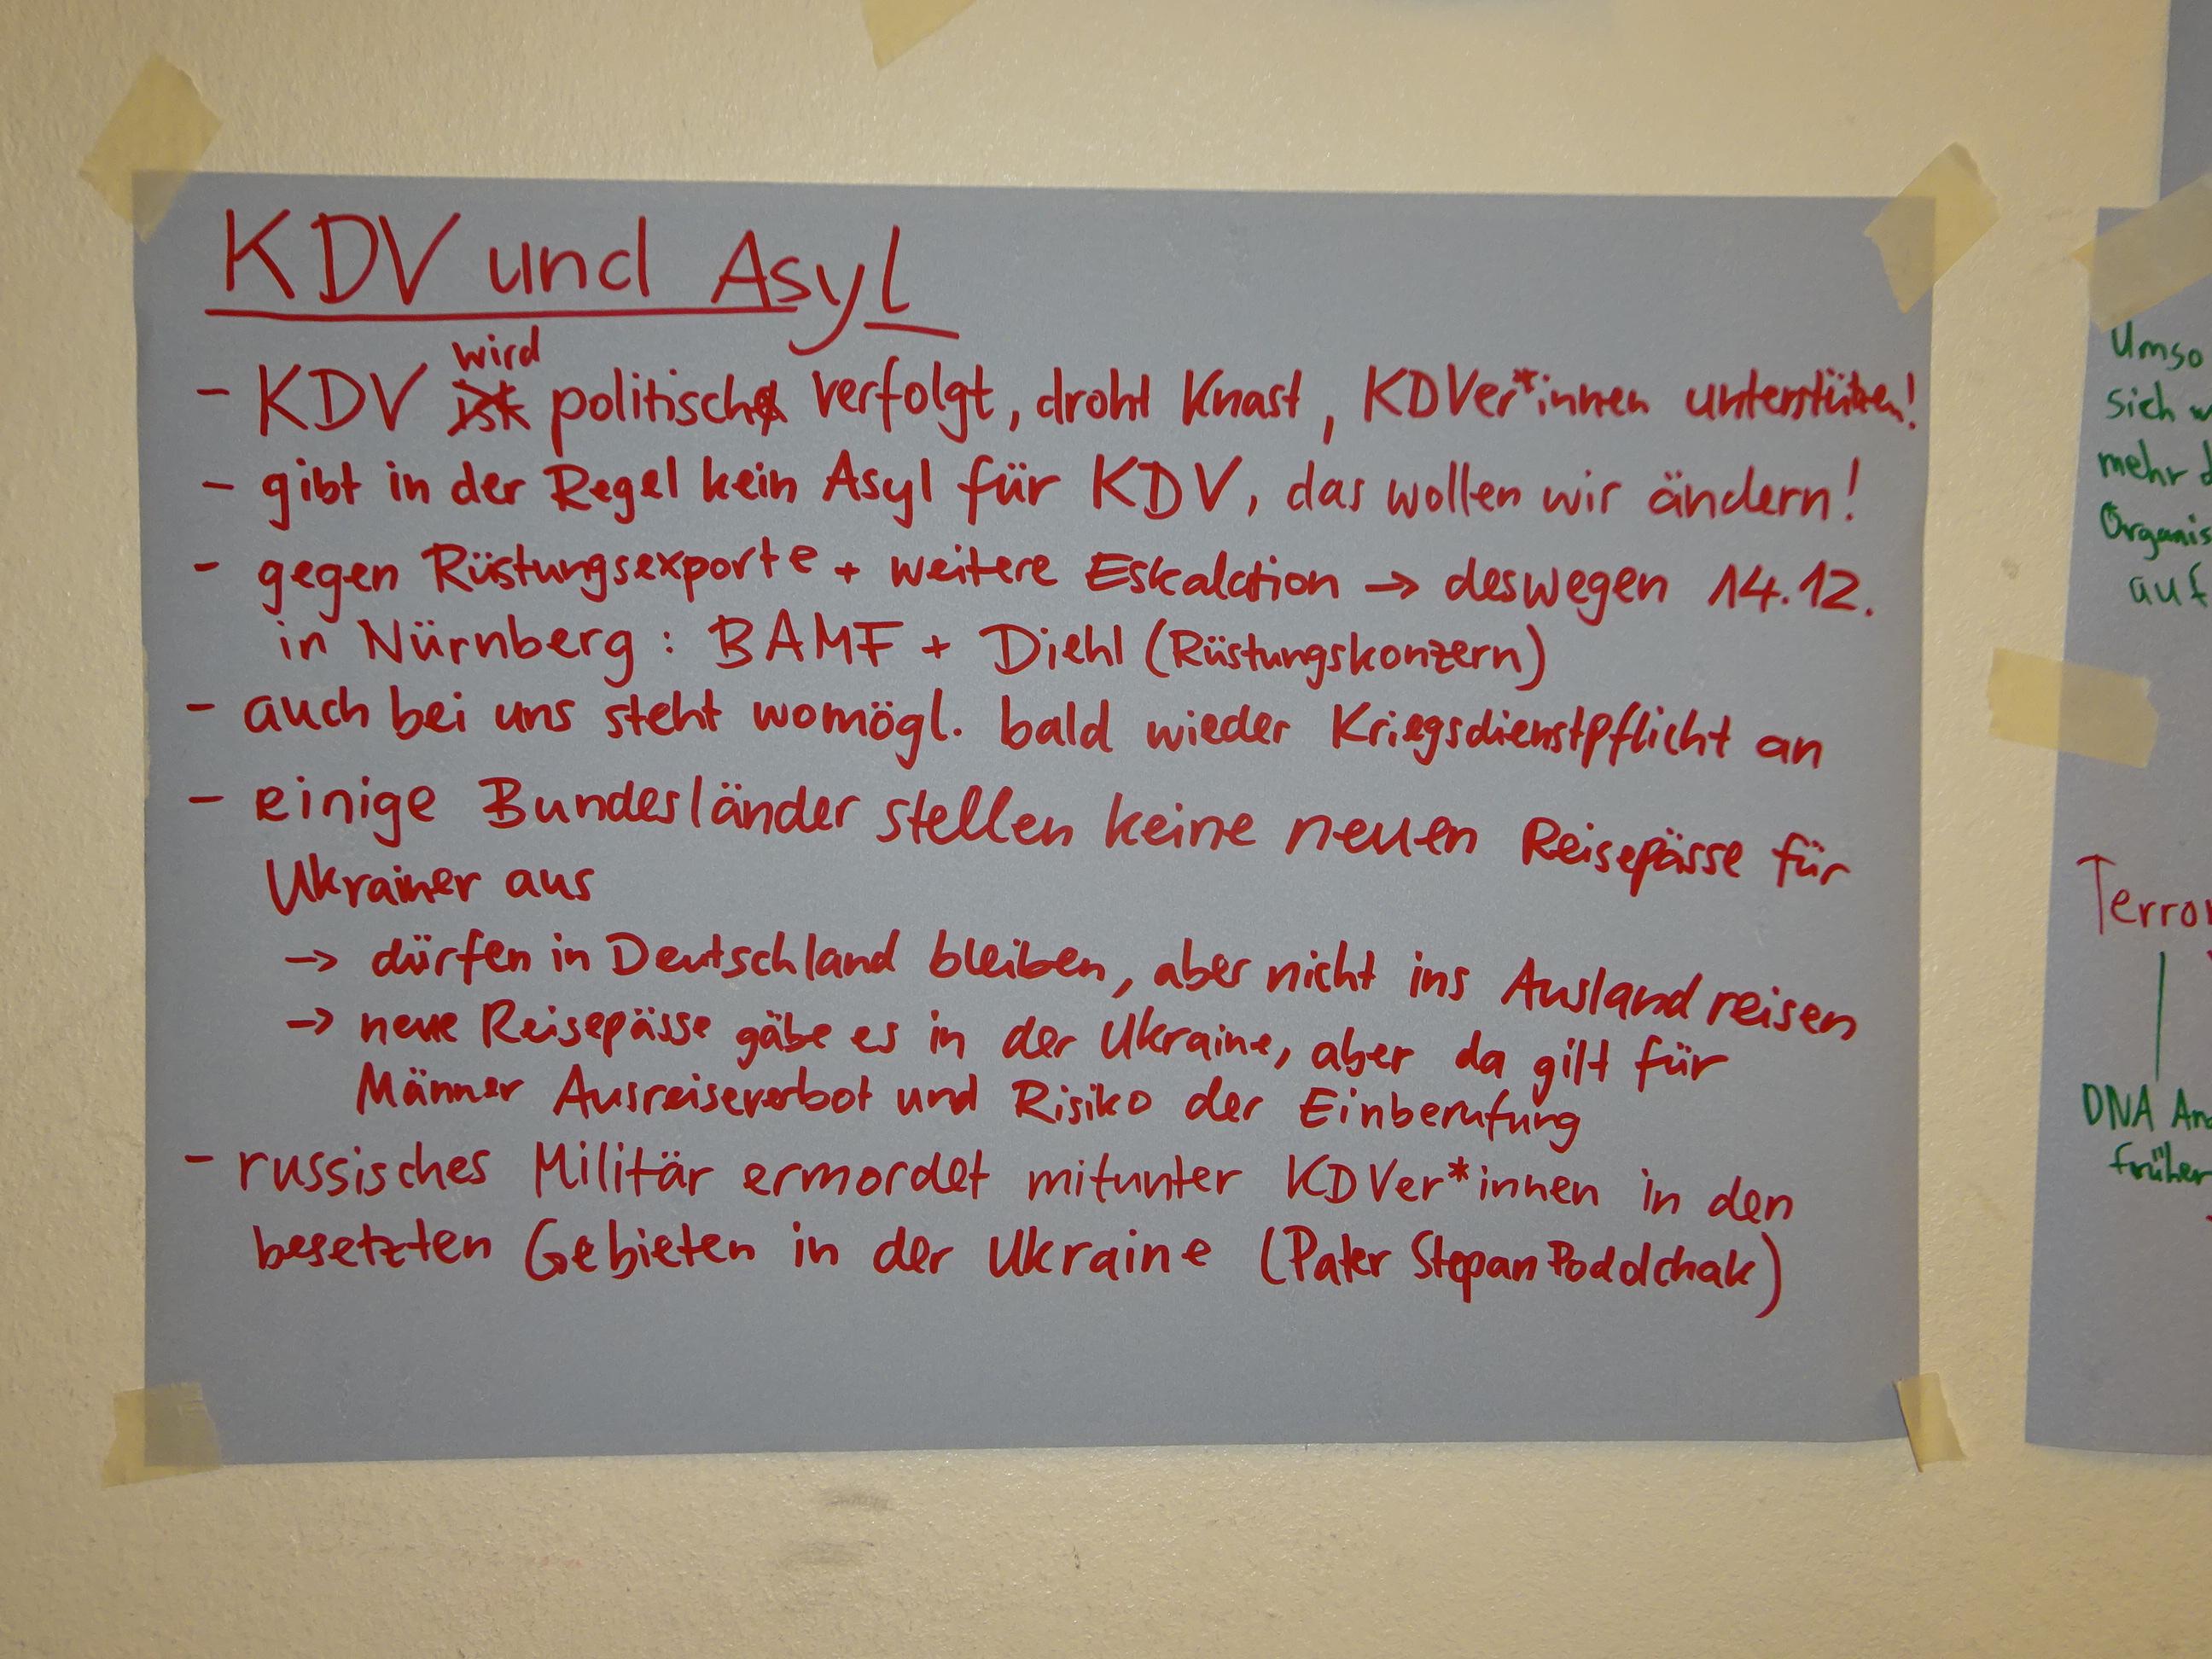 KDV und Asyl
wird
- KDV ist politisch verfolgt, droht Knast, KDVer*innen unterstützen!
- gibt in der Regel kein Asyl für KDV, das wollen wir ändern!
- gegen Rüstungsexporte + weitere Eskalation → deswegen 14.12.
in Nürnberg: BAMF + Diehl (Rüstungskonzern)
- auch bei uns steht womögl. bald wieder Kriegsdienstpflicht an
- einige Bundesländer stellen keine neuen Reisepässe für
Ukrainer aus
→ dürfen in Deutschland bleiben, aber nicht ins Ausland reisen
→ neue Reisepässe gäbe es in der Ukraine, aber da gilt für
Männer Ausreiseverbot und Risiko der Einberufung
- russisches Militär ermordet mitunter KDVer*innen in den
besetzten Gebieten in der Ukraine (Pater Stepan Poddchak)
Umso
sich w
mehr d
Organis
auf
Terror
DNA An
früher